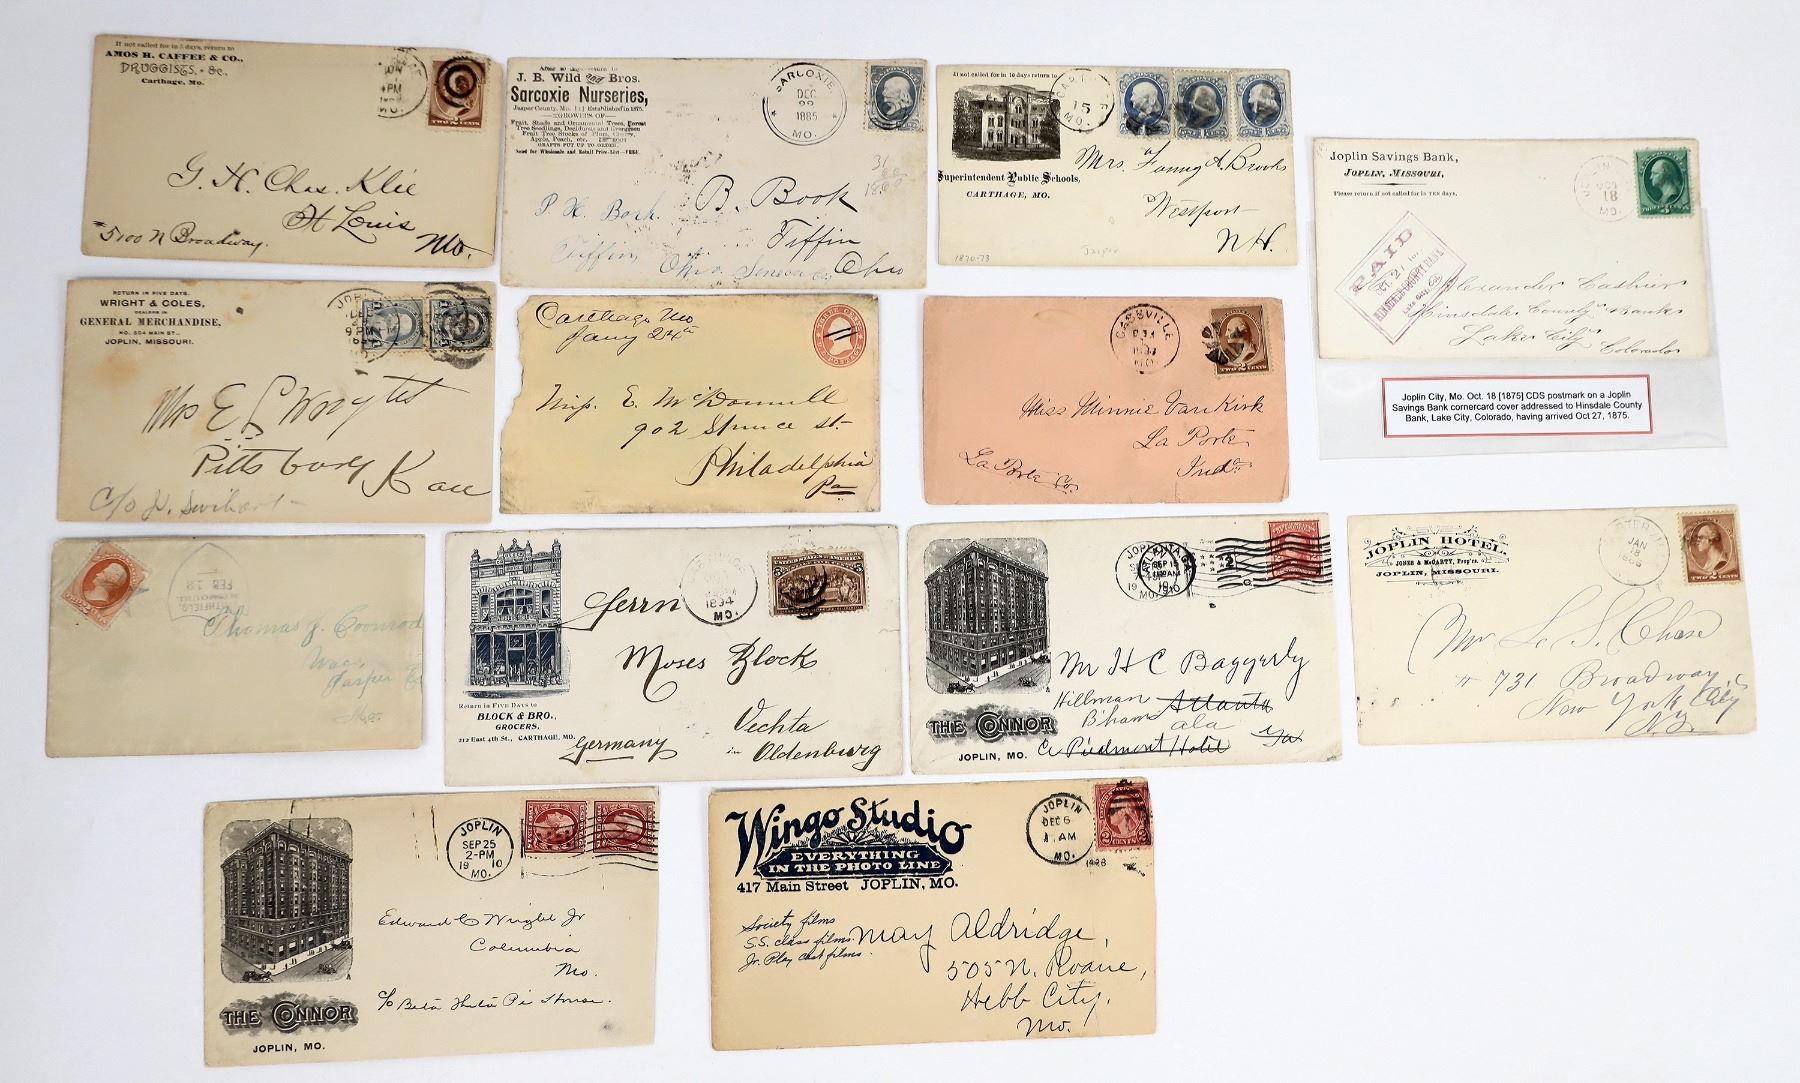 If not called for in 5 days, return to
AMOS H. CAFFEE & CO.,
DRUGGISTS, &c.,
Carthage, Mo.
4PM
MO.
TWO 2 CENTS
G. H. Chas. Klie
St Louis
Mo.
5100 N Broadway.
After 10 days return to
J. B. Wild and Bros.
Sarcoxie Nurseries,
Jasper County, Mo. Established in 1875.
GROWERS OF
Fruit, Shade and Ornamental Trees, Forest
Tree Seedlings, Deciduous and Evergreen
Fruit Tree Stocks of Plum, Cherry,
Apple, Peach, etc.
GRAFTS PUT UP TO ORDER.
Send for Wholesale and Retail Price-List—FREE.
SARCOXIE,
DEC
1885
MO.
B. Book
Tiffin
Ohio
P. H. Bork
Tiffin Ohio Seneca Co
If not called for in 10 days return to
15
MO.
Superintendent Public Schools,
CARTHAGE, MO.
Mrs. Fanny A. Brooks
Westport
N H.
1870-73
Jasper
Joplin Savings Bank,
JOPLIN, MISSOURI,
Please return if not called for in TEN days.
18
MO.
PAID
OCT. 27
HINSDALE COUNTY BANK
Alexander Cashier
Hinsdale County Bank
Lake City
Colorado
Joplin City, Mo. Oct. 18 [1875] CDS postmark on a Joplin
Savings Bank cornercard cover addressed to Hinsdale County
Bank, Lake City, Colorado, having arrived Oct 27, 1875.
RETURN IN FIVE DAYS.
WRIGHT & COLES,
DEALERS IN
GENERAL MERCHANDISE,
NO. 504 MAIN ST—
JOPLIN, MISSOURI.
Mrs E L Wright
Pittsburg Kan
C/O J. Swihart
Carthage Mo
Jany 24th
Miss. E. McDonnell
902 Spruce St-
Philadelphia
Pa
CASSVILLE
MO.
TWO 2 CENTS
Miss Minnie Van Kirk
La Porte
Inda
La Porte Co.
FEB 12
Thomas J. Coonrod
Jasper Co
Mo.
1894
MO.
Herrn
Moses Block
Vechta
in Oldenburg
Germany
Return in FIVE DAYS to
BLOCK & BRO.,
GROCERS,
212 East 4th St., CARTHAGE, MO.
SEP 15
MO. 1910
Mr H C Baggerly
Hillman Atlanta
B'ham ala
C/o Piedmont Hotel Ga
THE CONNOR
JOPLIN, MO.
JOPLIN HOTEL.
JONES & McCARTY, Prop'rs.
JOPLIN, MISSOURI.
JAN
18
TWO 2 CENTS
Mr L S. Chase
# 731 Broadway
New York City
N.Y.
JOPLIN
SEP 25
2-PM
19 10
MO.
Edward C Wright Jr
Columbia
Mo.
c/o Beta Theta Pi House.
THE CONNOR
JOPLIN, MO.
Wingo Studio
EVERYTHING
IN THE PHOTO LINE
417 Main Street JOPLIN, MO.
JOPLIN
DEC 6
AM
MO.
2 CENTS 2
Society films
S.S. class films
Jr. Play cast films.
May Aldridge,
505 N. Roane,
Webb City,
Mo.